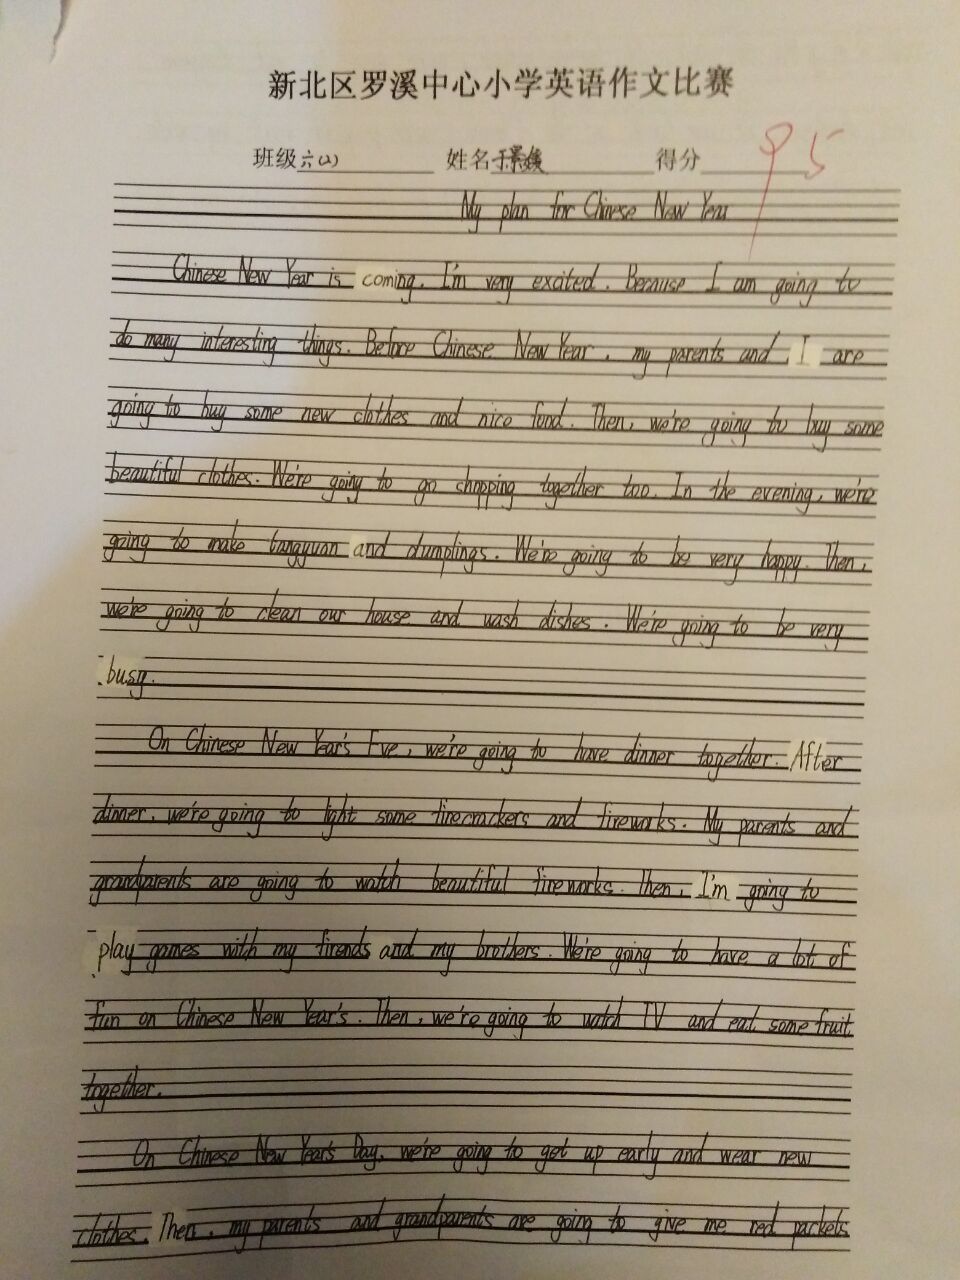 新北区罗溪中心小学英语作文比赛
班级六(2) 姓名 得分 95
My plan for Chinese New Year
Chinese New Year is coming. I'm very excited. Because I am going to
do many interesting things. Before Chinese New Year, my parents and I are
going to buy some new clothes and nice food. Then, we're going to buy some
beautiful clothes. We're going to go shopping together too. In the evening, we're
going to make tangyuan and dumplings. We're going to be very happy. Then,
we're going to clean our house and wash dishes. We're going to be very
busy.
On Chinese New Year's Eve, we're going to have dinner together. After
dinner, we're going to light some firecrackers and fireworks. My parents and
grandparents are going to watch beautiful fireworks. Then, I'm going to
play games with my firends and my brothers. We're going to have a lot of
fun on Chinese New Year's. Then, we're going to watch TV and eat some fruit
together.
On Chinese New Year's Day, we're going to get up early and wear new
clothes. Then, my parents and grandparents are going to give me red packets